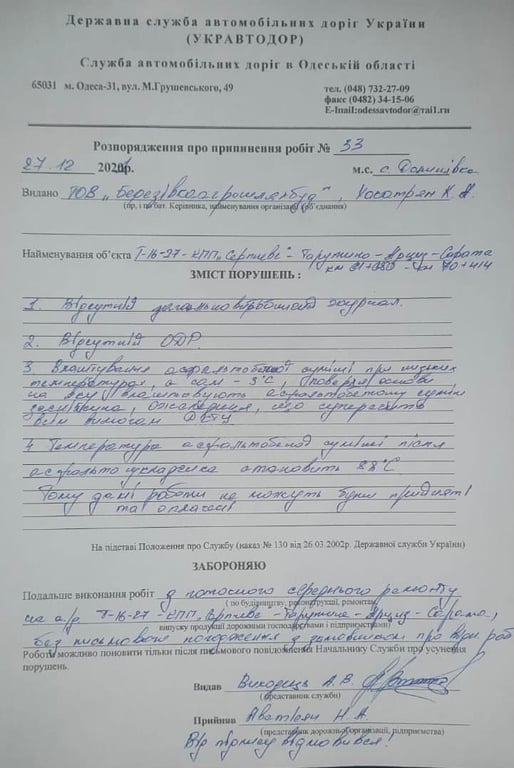 Державна служба автомобільних доріг України
(УКРАВТОДОР)
Служба автомобільних доріг в Одеській області
65031 м. Одеса-31, вул. М.Грушевського, 49
тел. (048) 732-27-09
факс (0482) 34-15-06
E-Inail:odessavtodor@tai1.ru
Розпорядження про припинення робіт № 33
27.12 2021р.
м.с. с. Долинівка
Видано ТОВ „Березівкаагрошляхбуд",
(пр. і по бат. Керівника, найменування організації (об'єднання)
Найменування об'єкта Т-16-27 - КПП „Серпневе" - Тарутино - Арциз - Сарата
км 70+414
ЗМІСТ ПОРУШЕНЬ :
1. Відсутній журнал.
2. Відсутній ОДР.
3. Влаштування асфальтобетонної суміші при низьких
температурах, а саме - 3°С, поверхня основи
на яку влаштовують асфальтобетонну суміш
засніжена, що суперечить
всім вимогам ДСТУ
4. Температура асфальтобетонної суміші після
асфальтоукладчика становить 88°С.
Тому дані роботи не можуть бути прийняті
та оплачені
На підставі Положення про Службу (наказ № 130 від 26.03.2002р. Державної служби України)
ЗАБОРОНЯЮ
Подальше виконання робіт з поточного середнього ремонту
( по будівництву, реконструкції, ремонтам
на а/д Т-16-27 - КПП „Серпневе - Тарутине - Арциз - Сарата,
випуску продукції дорожніми господарствами і підприємствами)
без письмового погодження з замовником про робіт
Роботи можливо поновити тільки після письмового повідомлення Начальнику Служби про усунення
порушень.
Видав Виходець А. В.
(представник служби)
Прийняв Аветісян Н. А.
(представник дорожньої організації, підприємства)
Від підпису відмовився!